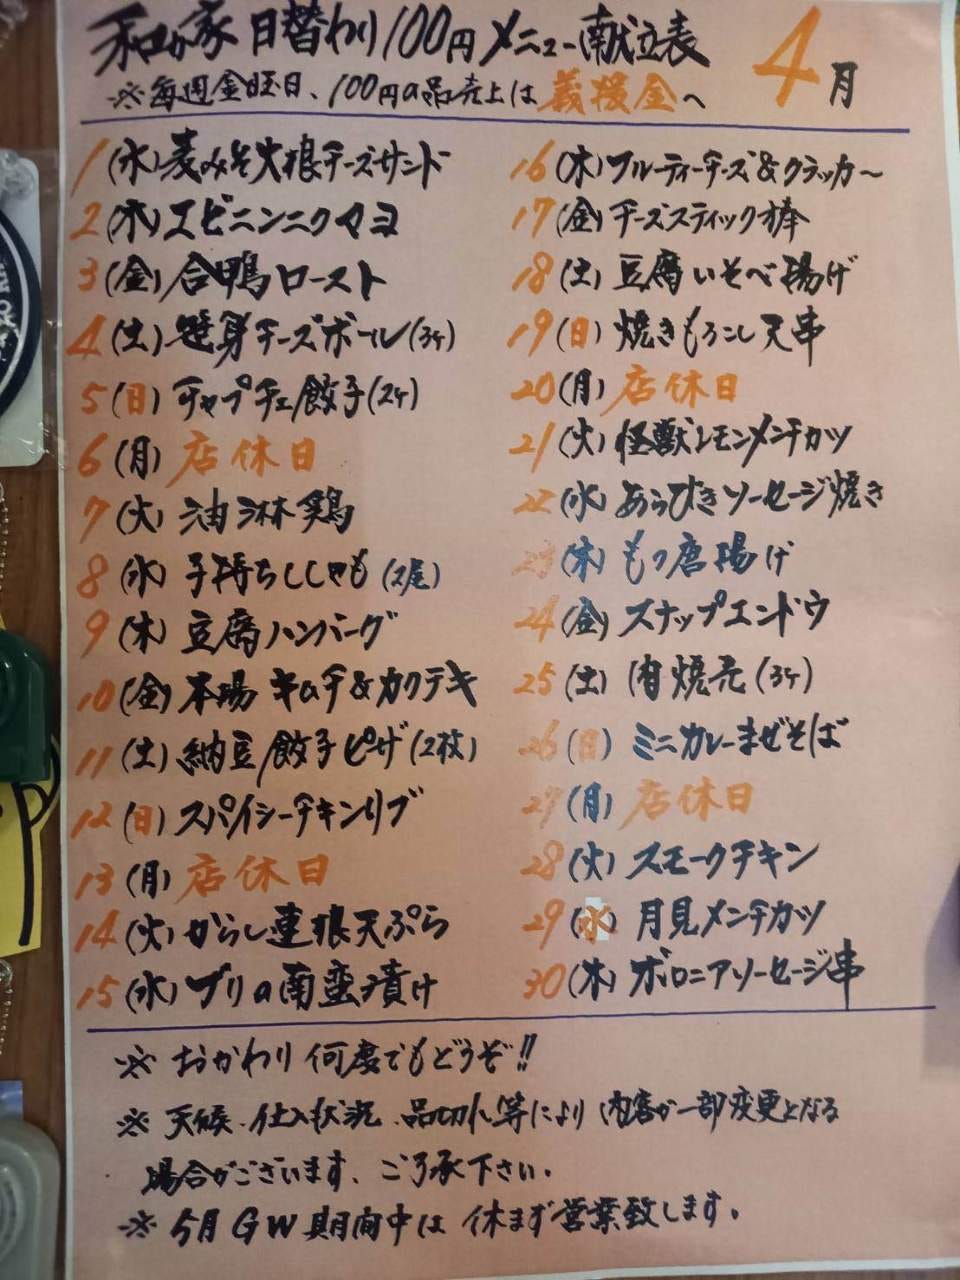 和が家 日替わり100円メニュー献立表 4月
※毎週金曜日、100円の品売上は義援金へ
1(水)麦みそ大根チーズサンド
2(木)エビニンニクマヨ
3(金)合鴨ロースト
4(土)笹身チーズボール(3ケ)
5(日)チャプチェ餃子(2ケ)
6(月)店休日
7(火)油淋鶏
8(水)子持ちししゃも(2尾)
9(木)豆腐ハンバーグ
10(金)本場キムチ&カクテキ
11(土)納豆餃子ピザ(2枚)
12(日)スパイシーチキンリブ
13(月)店休日
14(火)からし蓮根天ぷら
15(水)ブリの南蛮漬け
16(木)フルーティーチーズ&クラッカ〜
17(金)チーズスティック棒
18(土)豆腐いそべ揚げ
19(日)焼きもろこし天串
20(月)店休日
21(火)怪獣レモンメンチカツ
22(水)あらびきソーセージ焼き
23(木)もつ唐揚げ
24(金)スナップエンドウ
25(土)肉焼売(3ケ)
26(日)ミニカレーまぜそば
27(月)店休日
28(火)スモークチキン
29(水)月見メンチカツ
30(木)ボロニアソーセージ串
※おかわり何度でもどうぞ!!
※天候、仕入状況、品切れ等により内容が一部変更となる
場合がございます、ご了承下さい。
※5月GW期間中は休まず営業致します。